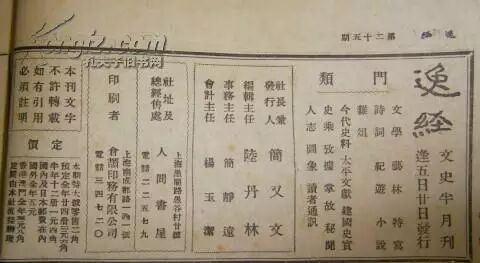 逸經
第二十五期
逸經
文史半月刊
逢五日廿日發行
門類
文學 藝林 特寫
詩詞 紀遊 小說
雜俎
今代史料 太平文獻 建國史實
史乘 攷據 掌故 秘聞
人志 圖象 讀者通訊
社長兼發行人 簡又文
編輯主任 陸丹林
事務主任 簡靜遠
會計主任 楊玉潔
社址及總經售處
人間書屋
上海愚園路愚谷村廿號
電話二二五七九
印刷者
印務有限公司
上海成都路一四一號
電話三四七二〇
本刊文字
不許轉載
如有引用
必須註明
定價
本期特大號零售二角
預定全年廿四冊三元六角
半年十二冊一元九角
國內及日本郵費在內
國外全年五元
香港澳門全年四元八角
定閱由本社
孔夫子旧书网